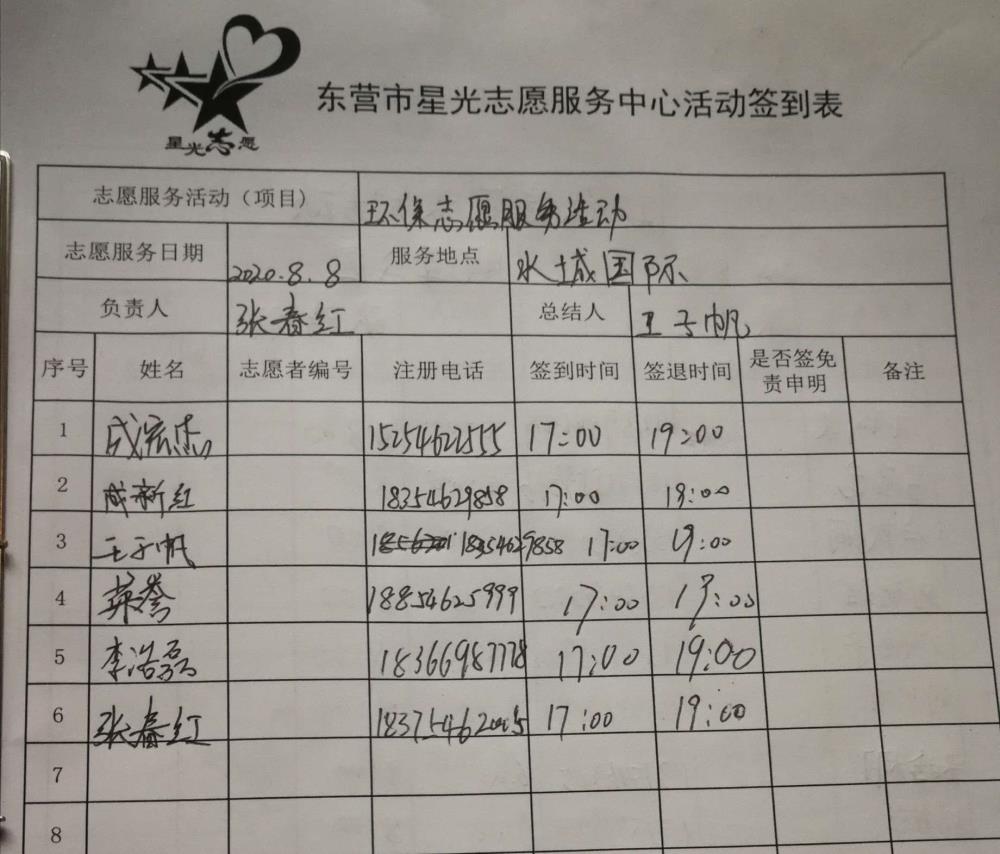 星光志愿
东营市星光志愿服务中心活动签到表
志愿服务活动（项目） 环保志愿服务活动
志愿服务日期 2020.8.8 服务地点 水城国际
负责人 张春红 总结人 王子帆
序号 姓名 志愿者编号 注册电话 签到时间 签退时间 是否签免责申明 备注
1 成宏志 15254622555 17:00 19:00
2 成新红 18354629858 17:00 19:00
3 王子帆 18354629858 17:00 19:00
4 18854625999 17:00 19:00
5 李浩磊 18366987778 17:00 19:00
6 张春红 17:00 19:00
7
8